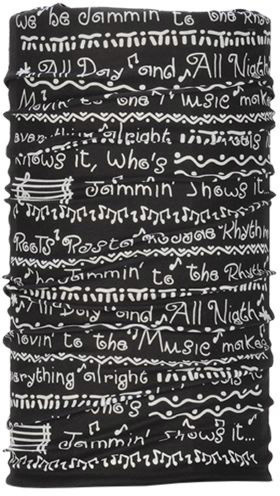 We be Jammin' to the
All Day and All Night
Movin' to the Music make
everything alright
Knows it, Who's
Jammin' Shows it.
Roots' Rasta Reggae Rhythm
Jammin' to the Rhy
All Day and All Night
Movin' to the Music makes
everything alright
Jammin' Shows it...